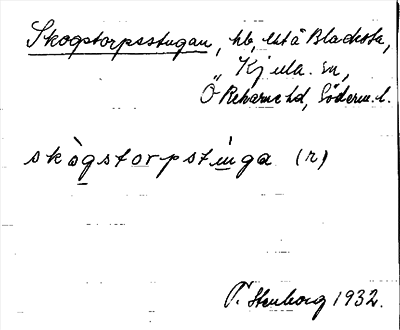 Skogstorpsstugan, hb, Utå Bladsta,
Kjula sn,
Ö Rekarne hd, Söderm. l.
skògstorpstinga (n)
T. Stenborg 1932.